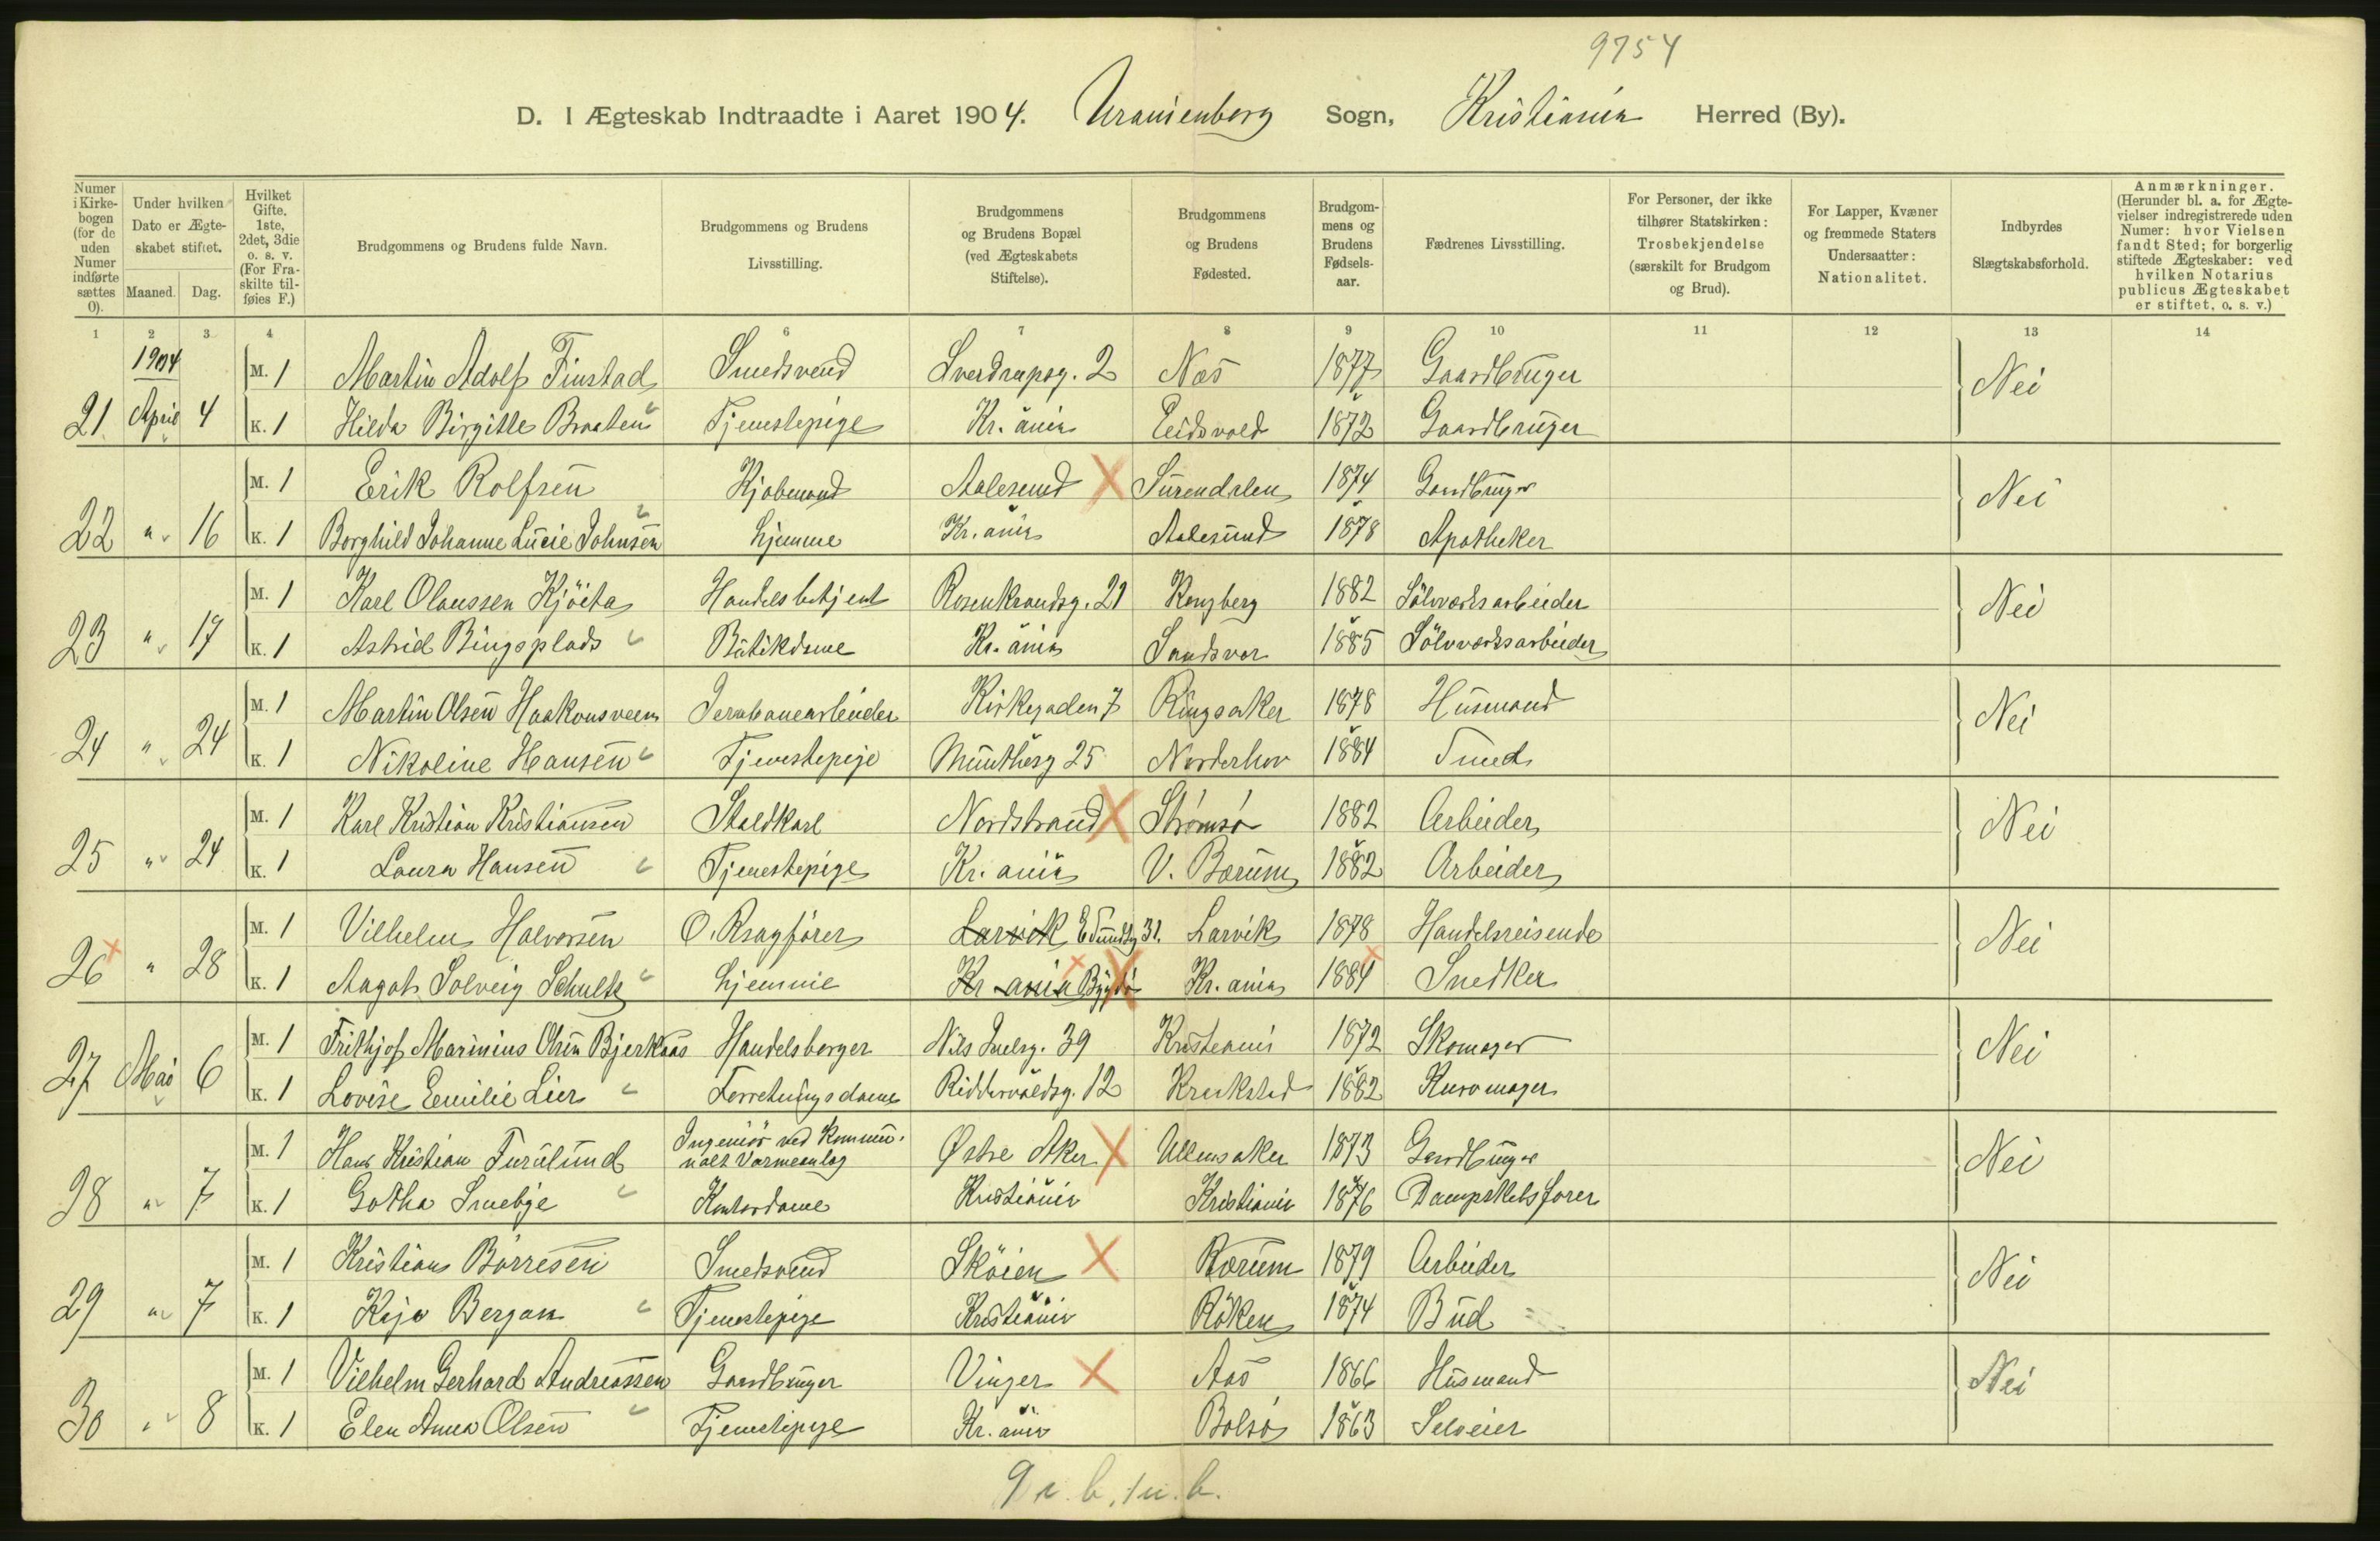 9754
D. I Ægteskab Indtraadte i Aaret 1904. Uranienborg Sogn, Kristiania Herred (By).
Numer i Kirkebogen (for de uden Numer indførte sættes 0).
Under hvilken Dato er Ægteskabet stiftet.
Maaned. Dag.
Hvilket Gifte. 1ste, 2det, 3die o. s. v. (For Fraskilte tilføies F.)
Brudgommens og Brudens fulde Navn.
Brudgommens og Brudens Livsstilling.
Brudgommens og Brudens Bopæl (ved Ægteskabets Stiftelse).
Brudgommens og Brudens Fødested.
Brudgommens og Brudens Fødselsaar.
Fædrenes Livsstilling.
For Personer, der ikke tilhører Statskirken: Trosbekjendelse (særskilt for Brudgom og Brud).
For Lapper, Kvæner og fremmede Staters Undersaatter: Nationalitet.
Indbyrdes Slægtskabsforhold.
Anmærkninger. (Herunder bl. a. for Ægtevielser indregistrerede uden Numer: hvor Vielsen fandt Sted; for borgerlig stiftede Ægteskaber: ved hvilken Notarius publicus Ægteskabet er stiftet, o. s. v.)
1 2 3 4 6 7 8 9 10 11 12 13 14
1904
M. 1 Martin Adolf Finstad Smedsvend Sverdrupsg. 2 Næs 1877 Gaardbruger Nei
21 April 4 K. 1 Hilda Birgitte Braaten Tjenestepige Kr.ania Eidsvold 1872 Gaardbruger
M. 1 Erik Rolfsen Kjøbmand Aalesund Surendalen 1874 Gaardbruger Nei
22 " 16 K. 1 Borghild Johanne Lucie Johnsen hjemme Kr.ania Aalesund 1878 Apotheker
M. 1 Karl Olaussen Kjöita Handelsbetjent Rosenkrandsg. 21 Kongberg 1882 Sölvverksarbeider Nei
23 " 17 K. 1 Astrid Bingsplads Butikdame Kr.ania Sandsvær 1885 Sölvverksarbeider
M. 1 Martin Olsen Haakonsveen Jernbanearbeider Kirkegaden 7 Ringsaker 1878 Husmand Nei
24 " 24 K. 1 Nikoline Hansen Tjenestepige Muntheg 25 Norderhov 1884 Smed
M. 1 Karl Kristian Kristiansen Staldkarl Nordstrand Strømsø 1882 Arbeider Nei
25 " 24 K. 1 Laura Hansen Tjenestepige Kr.ania V. Bærum 1882 Arbeider
M. 1 Vilhelm Halvorsen O.Rsagfører Larvik E Sundtsg 31. Larvik 1878 Handelsreisende Nei
26 " 28 K. 1 Aagot Solveig Schultz hjemme Kr ania Bygdø Kr.ania 1884 Snedker
M. 1 Frithjof Marinius Olsen Bjerkaas Handelsborger Nils Juelsg. 39 Kristiania 1872 Skomager Nei
27 Mai 6 K. 1 Lovise Emilie Lier Forretningsdame Riddervoldsg. 12 Krakstad 1882 Kurvmager
M. 1 Hans Kristian Furulund Ingeniør ved Kommunalt Varmeanlæg Østre Aker Ullensaker 1873 Gaardbruger Nei
28 " 7 K. 1 Gotha Smebye Kontordame Kristiania Kristiania 1876 Dampskibsfører
M. 1 Kristian Børresen Smedsvend Sköien Bærum 1879 Arbeider Nei
29 " 7 K. 1 Kaja Bergan Tjenestepige Kristiania Röken 1874 Bud
M. 1 Vilhelm Gerhard Andreassen Gaardbruger Vinger Aas 1866 Husmand Nei
30 " 8 K. 1 Elen Anna Olsen Tjenestepige Kr.ania Bolsø 1863 Selveier